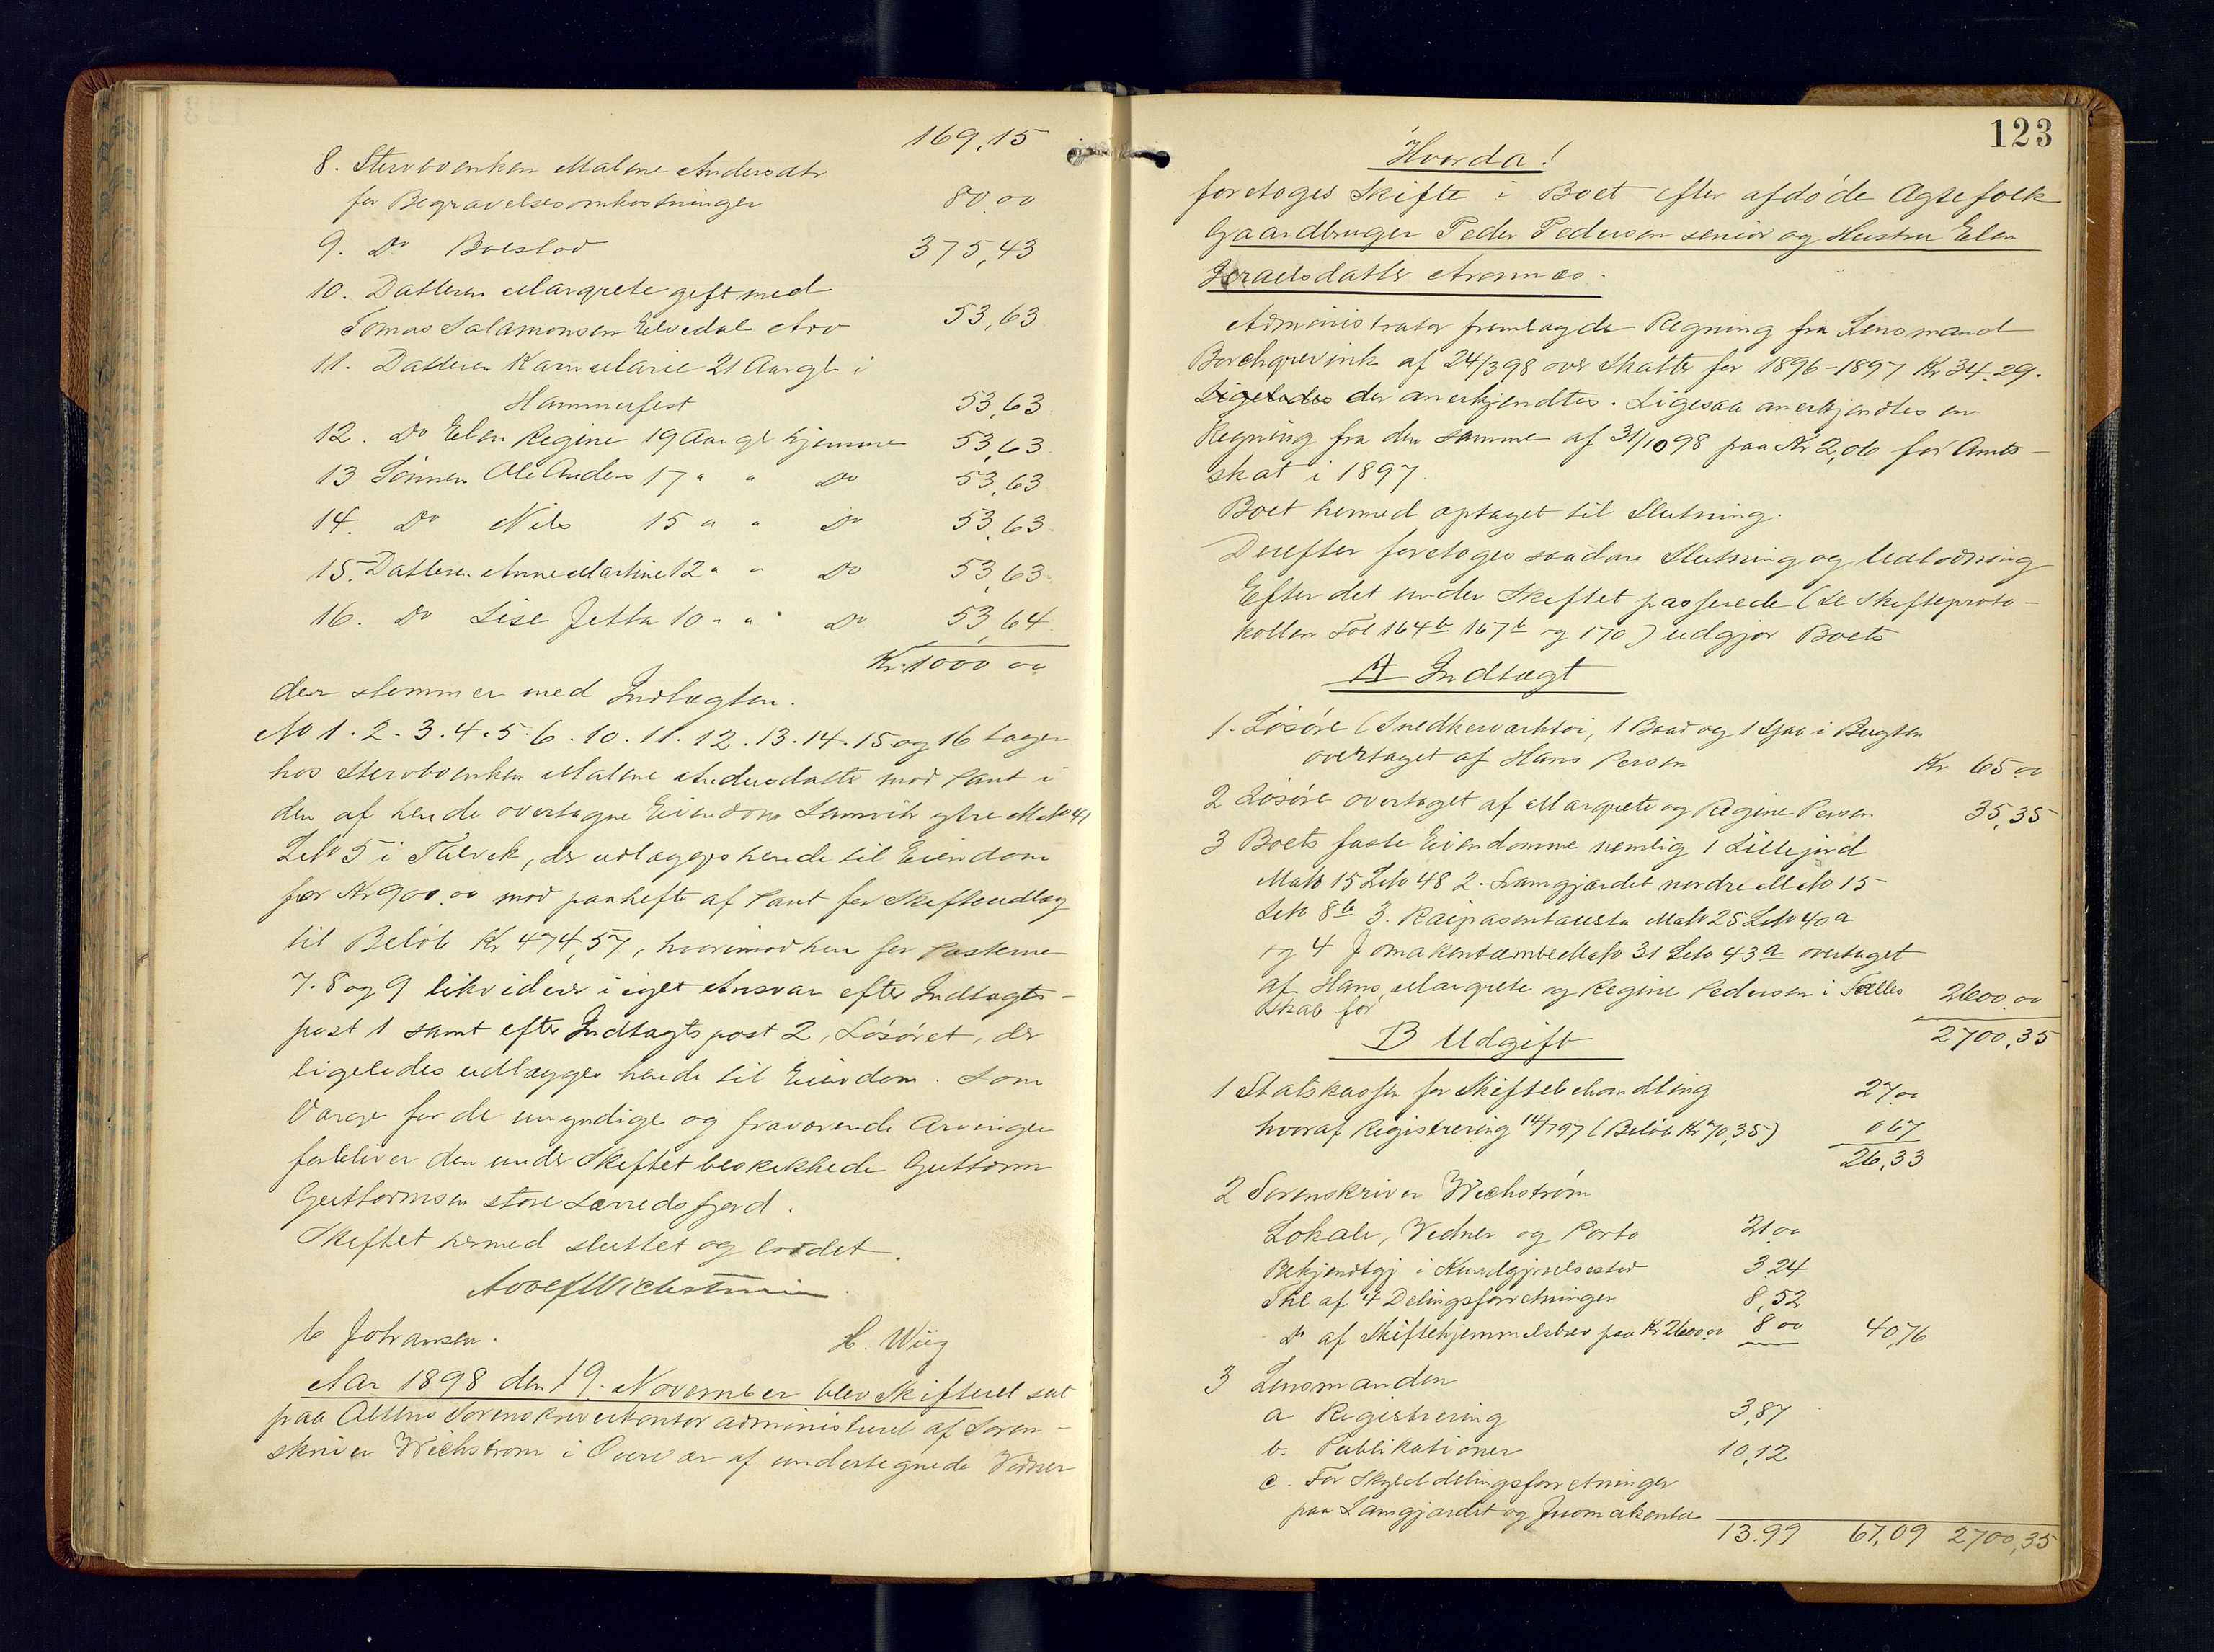 169,15
8. Stervboenken Malene Andersdtr
for Begravelsesomkostninger 80.00
9. Do Boeslod 375,43
10. Datteren Margrete gift med
Tomas Salamonsen Eibedal Arv 53,63
11. Datteren Karn Marie 21 Aar gl i
Hammerfest 53,63
12. Do Elen Regine 19 Aar gl hjemme 53,63
13 Sönnen Ole Anders 17 " " Do 53,63
14. Do Nils 15 " " Do 53,63
15. Datteren Anne Martine 12 " " Do 53,63
16. Do Lise Jetta 10 " " Do 53,64
Kr. 1000 00
der stemmer med Indtægten.
No 1. 2. 3. 4. 5. 6. 10. 11. 12. 13. 14. 15 og 16 tages
hos Stervboenken Malene Andersdatter mod Pant i
den af hende overtagne Eiendom Samvik ytre MNo 41
LNo 5 i Talvik, der udlægges hende til Eiendom
for Kr 900.00 mod paahefte af Pant for Skifteudlæg
til Beløb Kr 474,57, hvorimod hun for Posterne
7. 8 og 9 likviderer i eget Ansvar efter Indtægts-
post 1 samt efter Indtægtspost 2, Løsøret, der
ligeledes udlægges hende til Eiendom. Som
Værge for de umyndige og fraværende Arvinger
forbliver den under Skiftet beskikkede Guttorm
Guttormsen store Lerredsfjord.
Skiftet hermed sluttet og loddet.
Adolf Wichstrøm
C Johansen. H. Wiig
Aar 1898 den 19. November blev Skifteret sat
paa Altens Sorenskriverkontor administreret af Soren-
skriver Wichstrøm i Overvær af undertegnede Vidner
123
Hvorda!
foretoges Skifte i Boet efter afdøde Ægtefolk
Gaardbruger Peder Pedersen senior og Hustru Elen
Israelsdatter Aronnæs.
Administrator fremlagde Regning fra Lensmand
Borchgrevink af 24/3 98 over Skatter for 1896-1897 Kr 34.29.
Ligeledes der anerkjendtes. Ligesaa anerkjendtes en
Regning fra den samme af 31/10 98 paa Kr 2,06 for Amts-
skat i 1897.
Boet hermed optaget til Slutning.
Derefter foretoges saadan Slutning og Udlodning
Efter det under Skiftet passerede (se Skifteproto-
kollen Fol 164 b 167 b og 170) udgjør Boets
A Indtægt
1. Løsøre (Snedkerværktøi, 1 Baad og 1 Sjaa i Bugten
overtaget af Hans Persen Kr 65 00
2 Løsøre overtaget af Margrete og Regine Persen 35,35
3 Boets faste Eiendomme nemlig 1 Lillejord
MNo 15 LNo 48 2. Langjærdet nordre MNo 15
LNo 8 b 3. Raipasentausta MNo 25 LNo 40 a
og 4 Jomakentæmbe MNo 31 LNo 43 a overtaget
af Hans, Margrete og Regine Pedersen i Fælles
skab for 2600.00
2700,35
B Udgift
1 Statskassen for Skiftebehandling 27.00
hvoraf Registrering 14/7 97 (Beløb Kr 70,35) 0 67
26,33
2 Sorenskriver Wichstrøm
Lokale, Vidner og Porto 21.00
Bekjendtgj i Kundgjørelsestid 3.24
Thl af 4 Delingsforretninger 8,52
Do af Skiftehjemmelsbrev paa Kr 2600.00 8 00 40,76
3 Lensmanden
a Registrering 3,87
b. Publikationer 10,12
c. For Skylddelingsforretninger
paa Langjærdet og Juomakenta
13.99 67,09 2700,35